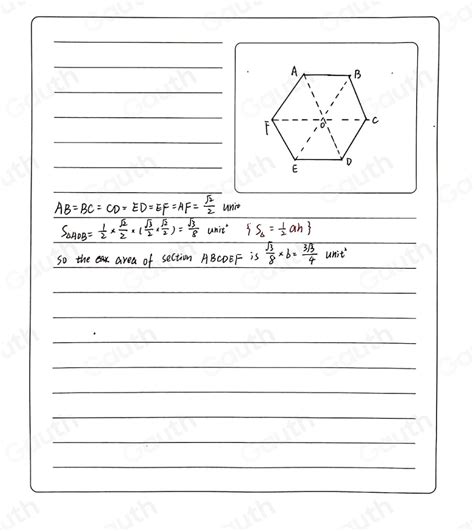 A
B
F
O
C
E
D
AB=BC=CD=ED=EF=AF= √2/2 unit
S△AOB= 1/2 × √2/2 × (√3/2 × √2/2) = √3/8 unit² {S△ = 1/2 ah}
So the area of section ABCDEF is √3/8 × 6 = 3√3/4 unit²